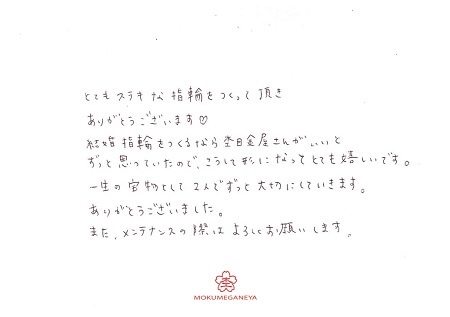 とてもステキな指輪をつくって頂き
ありがとうございます♡
結婚指輪をつくるなら杢目金屋さんがいいと
ずっと思っていたので、こうして形になってとても嬉しいです。
一生の宝物として2人でずっと大切にしていきます。
ありがとうございました。
また、メンテナンスの際はよろしくお願いします。
杢
MOKUMEGANEYA